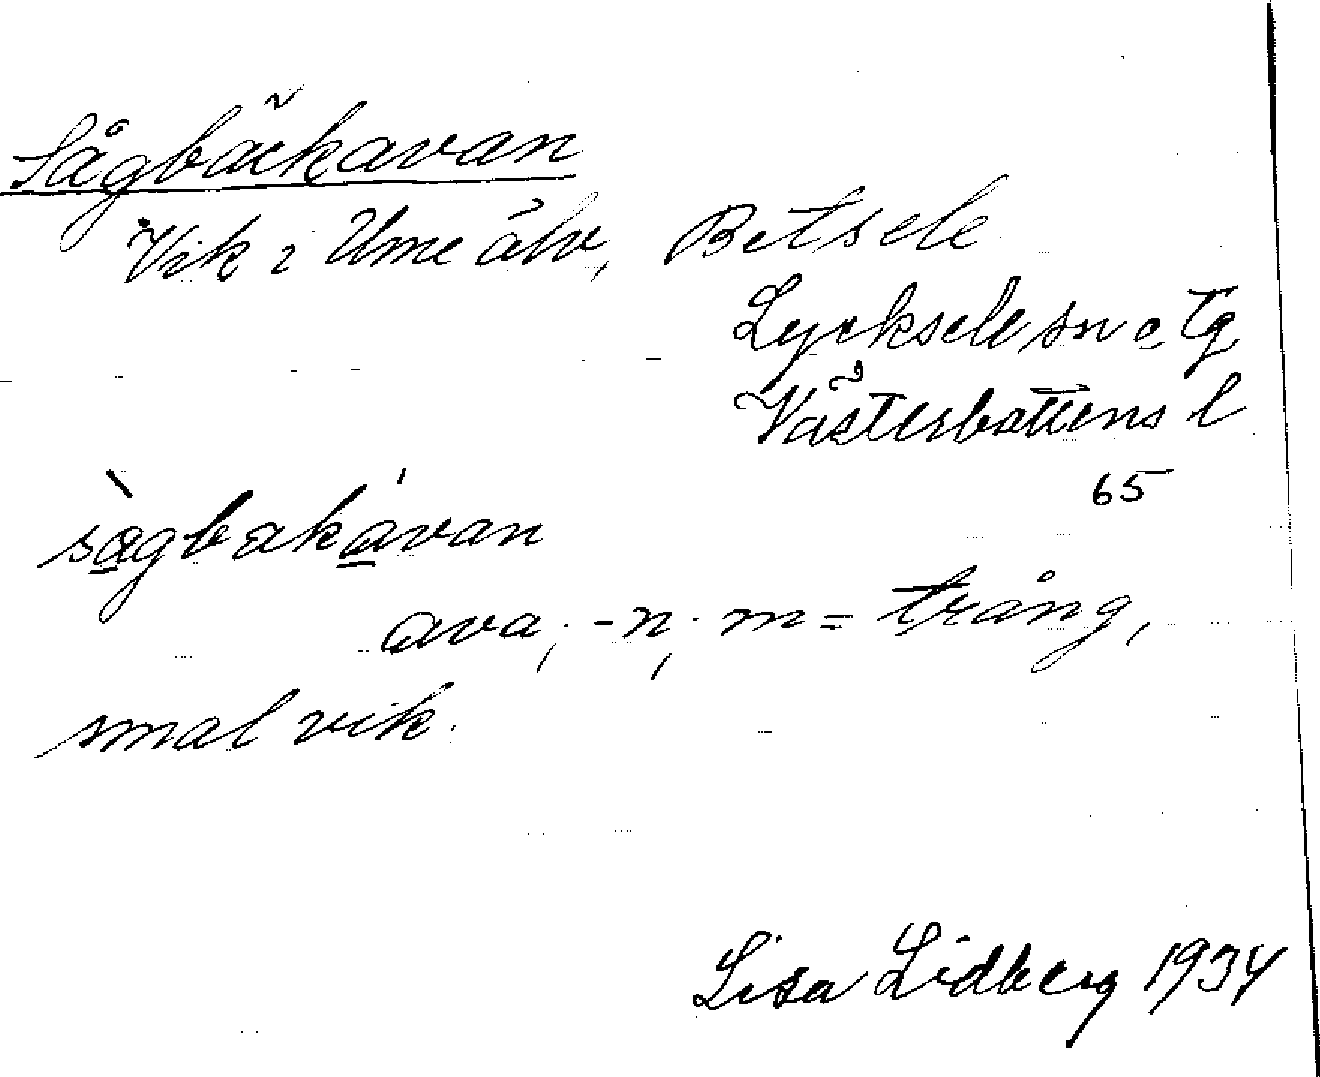 Sågbäckavan
Vik i Ume älv, Betsele
Lycksele sn o tg
Västerbottens l
65
sàgbakávan
ava, -n, m = trång,
smal vik.
Lisa Lidberg 1934